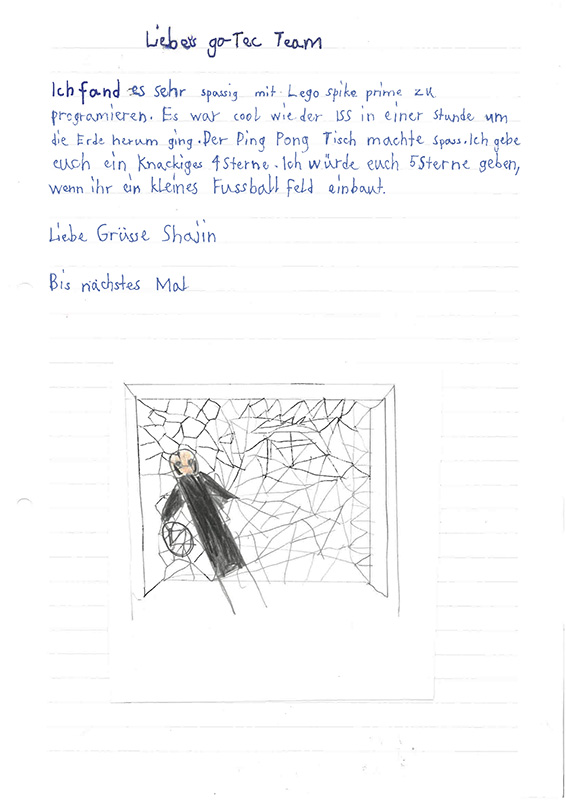 Liebes go-Tec Team
Ich fand es sehr spassig mit Lego spike prime zu
programieren. Es war cool wie der ISS in einer stunde um
die Erde herum ging. Der Ping Pong Tisch machte spass. Ich gebe
euch ein Knackiges 4 Sterne. Ich würde euch 5 Sterne geben,
wenn ihr ein kleines Fussball feld einbaut.
Liebe Grüsse Shajin
Bis nächstes Mal